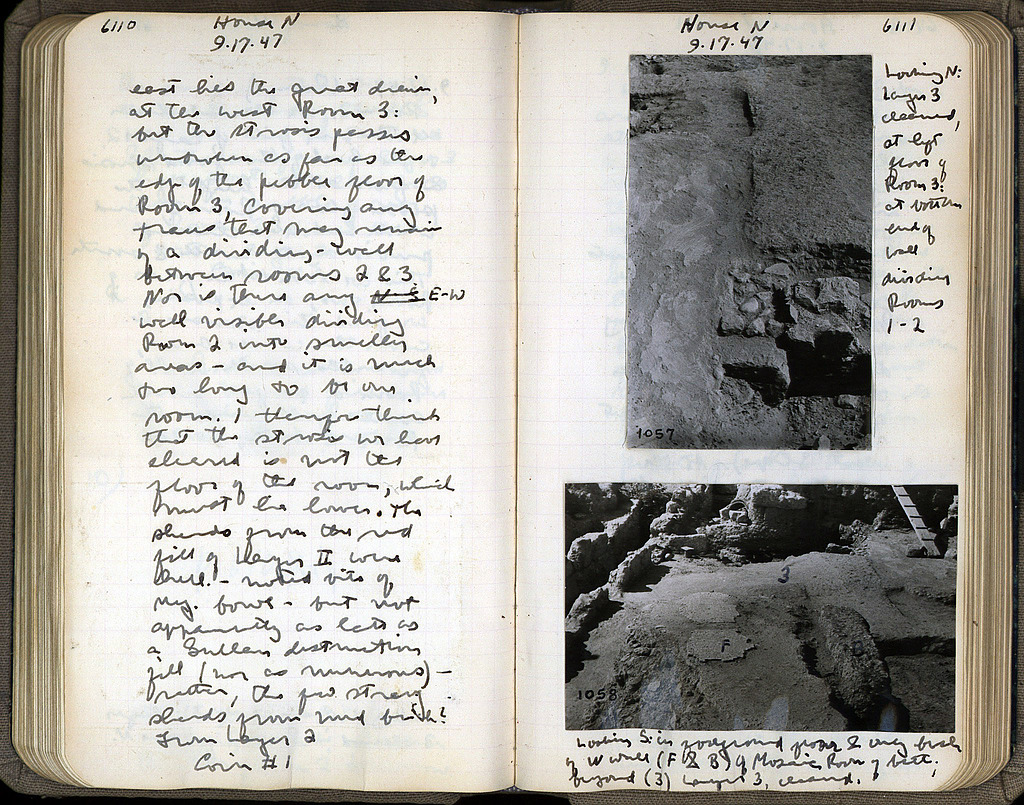 6110
House N
9.17.47
east lies the great drain,
at the west Room 3:
but the strosis passes
unbroken as far as the
edge of the pebble floor of
Room 3, covering any
traces that may remain
of a dividing-wall
between rooms 2 & 3
Nor is there any N-S E-W
wall visible dividing
Room 2 into smaller
areas - and it is much
too long to be one
room. I therefore think
that the strosis we have
cleared is not the
floor of the room, which
must be lower. The
sherds from the red
fill of Layer II were
Hell. - noted bits of
Meg. bowl - but not
apparently as late as
a Sullan destruction
fill (nor as numerous) -
rather, the few strong
sherds from mud brick?
From Layer 2
Coin #1
House N
9.17.47
6111
Looking N:
Layer 3
cleaned,
at left
floor of
Room 3:
at bottom
end of
wall
dividing
Rooms
1-2
1057
3
F
B
1058
Looking S: in foreground floor &
of W wall (F & B) of Mosaic Room of
beyond (3) Layer 3, cleaned.